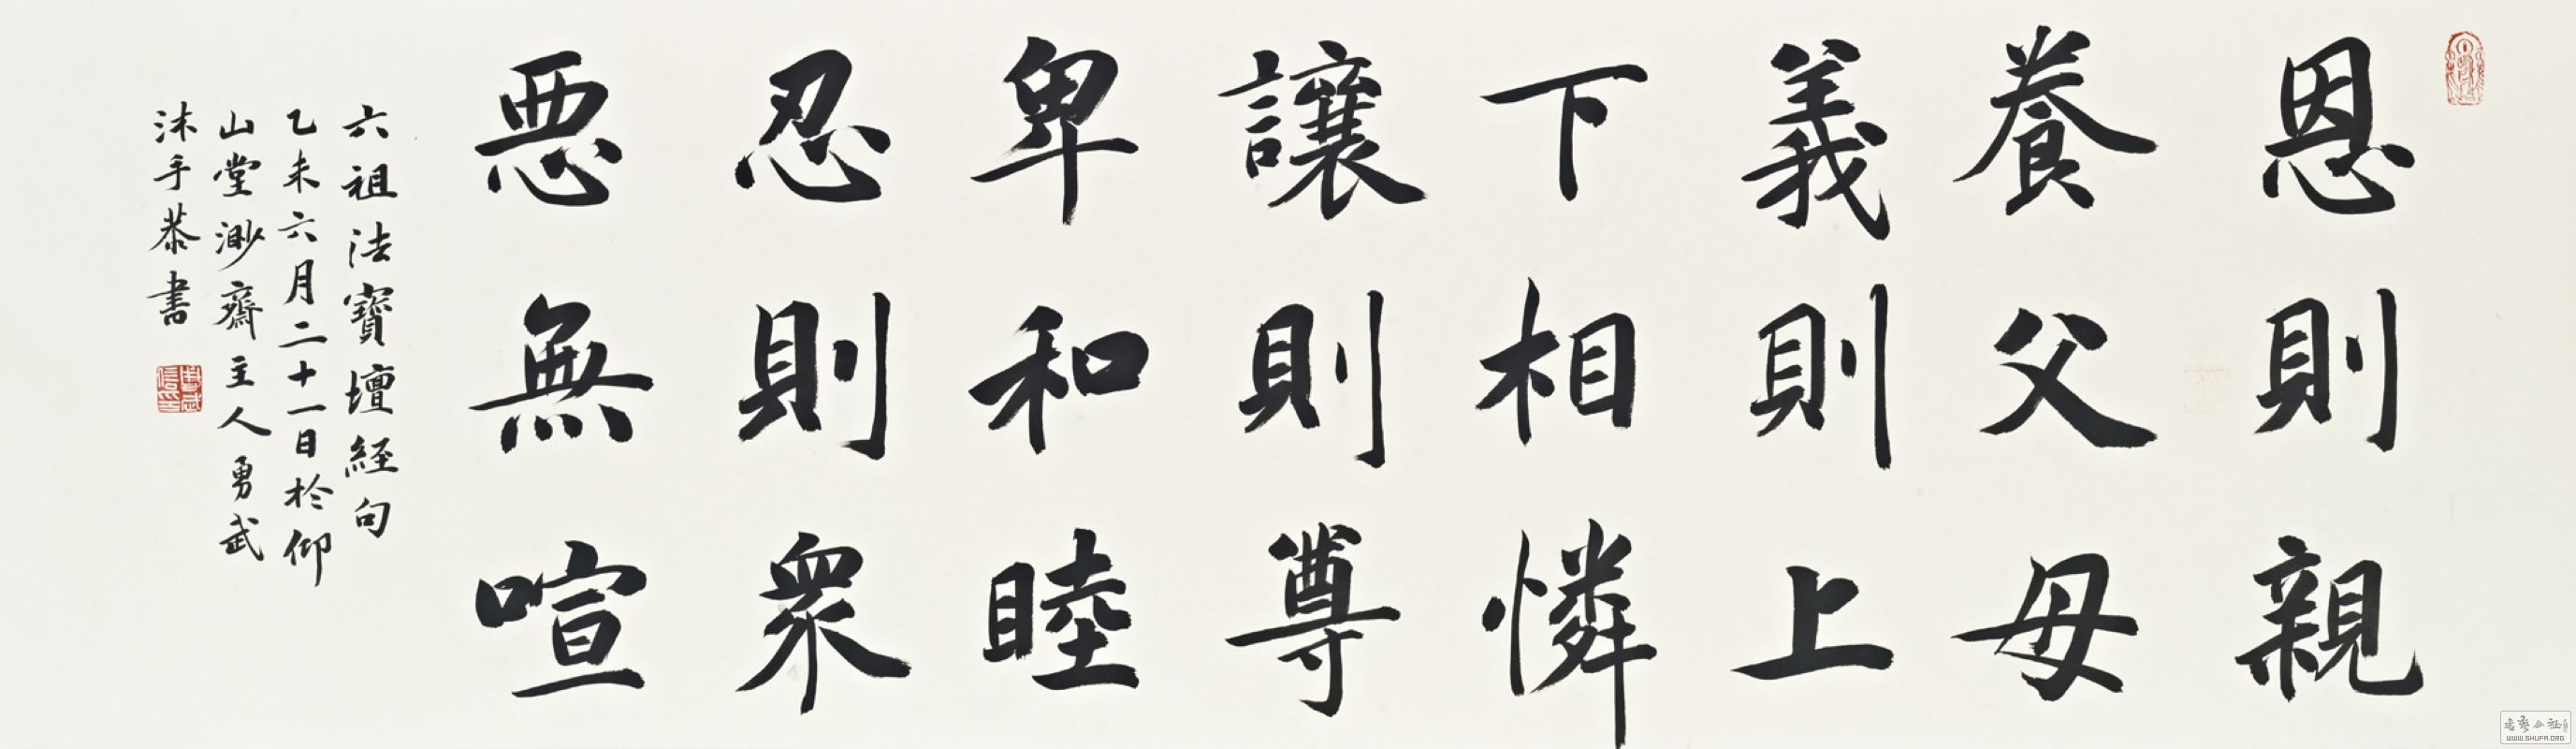 恩則親
養父母
義則上
下相憐
讓則尊
卑和睦
忍則衆
惡無喧
六祖法寶壇經句
乙未六月二十一日於仰
山堂渺齋主人勇武
沐手恭書
WWW.SHUFA.ORG